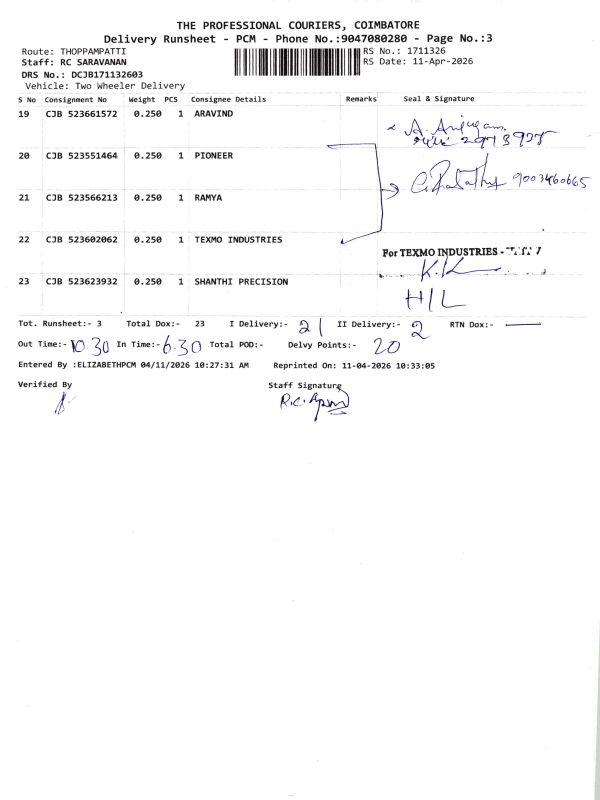 THE PROFESSIONAL COURIERS, COIMBATORE
Delivery Runsheet - PCM - Phone No.:9047080280 - Page No.:3
Route: THOPPAMPATTI RS No.: 1711326
Staff: RC SARAVANAN RS Date: 11-Apr-2026
DRS No.: DCJB171132603
Vehicle: Two Wheeler Delivery
S No Consignment No Weight PCS Consignee Details Remarks Seal & Signature
19 CJB 523661572 0.250 1 ARAVIND
20 CJB 523551464 0.250 1 PIONEER
9003460665
21 CJB 523566213 0.250 1 RAMYA
22 CJB 523602062 0.250 1 TEXMO INDUSTRIES
For TEXMO INDUSTRIES -
23 CJB 523623932 0.250 1 SHANTHI PRECISION
H/L
Tot. Runsheet:- 3 Total Dox:- 23 I Delivery:- 21 II Delivery:- 2 RTN Dox:- —
Out Time:- 10.30 In Time:- 6.30 Total POD:- Delvy Points:- 20
Entered By :ELIZABETHPCM 04/11/2026 10:27:31 AM Reprinted On: 11-04-2026 10:33:05
Verified By Staff Signature